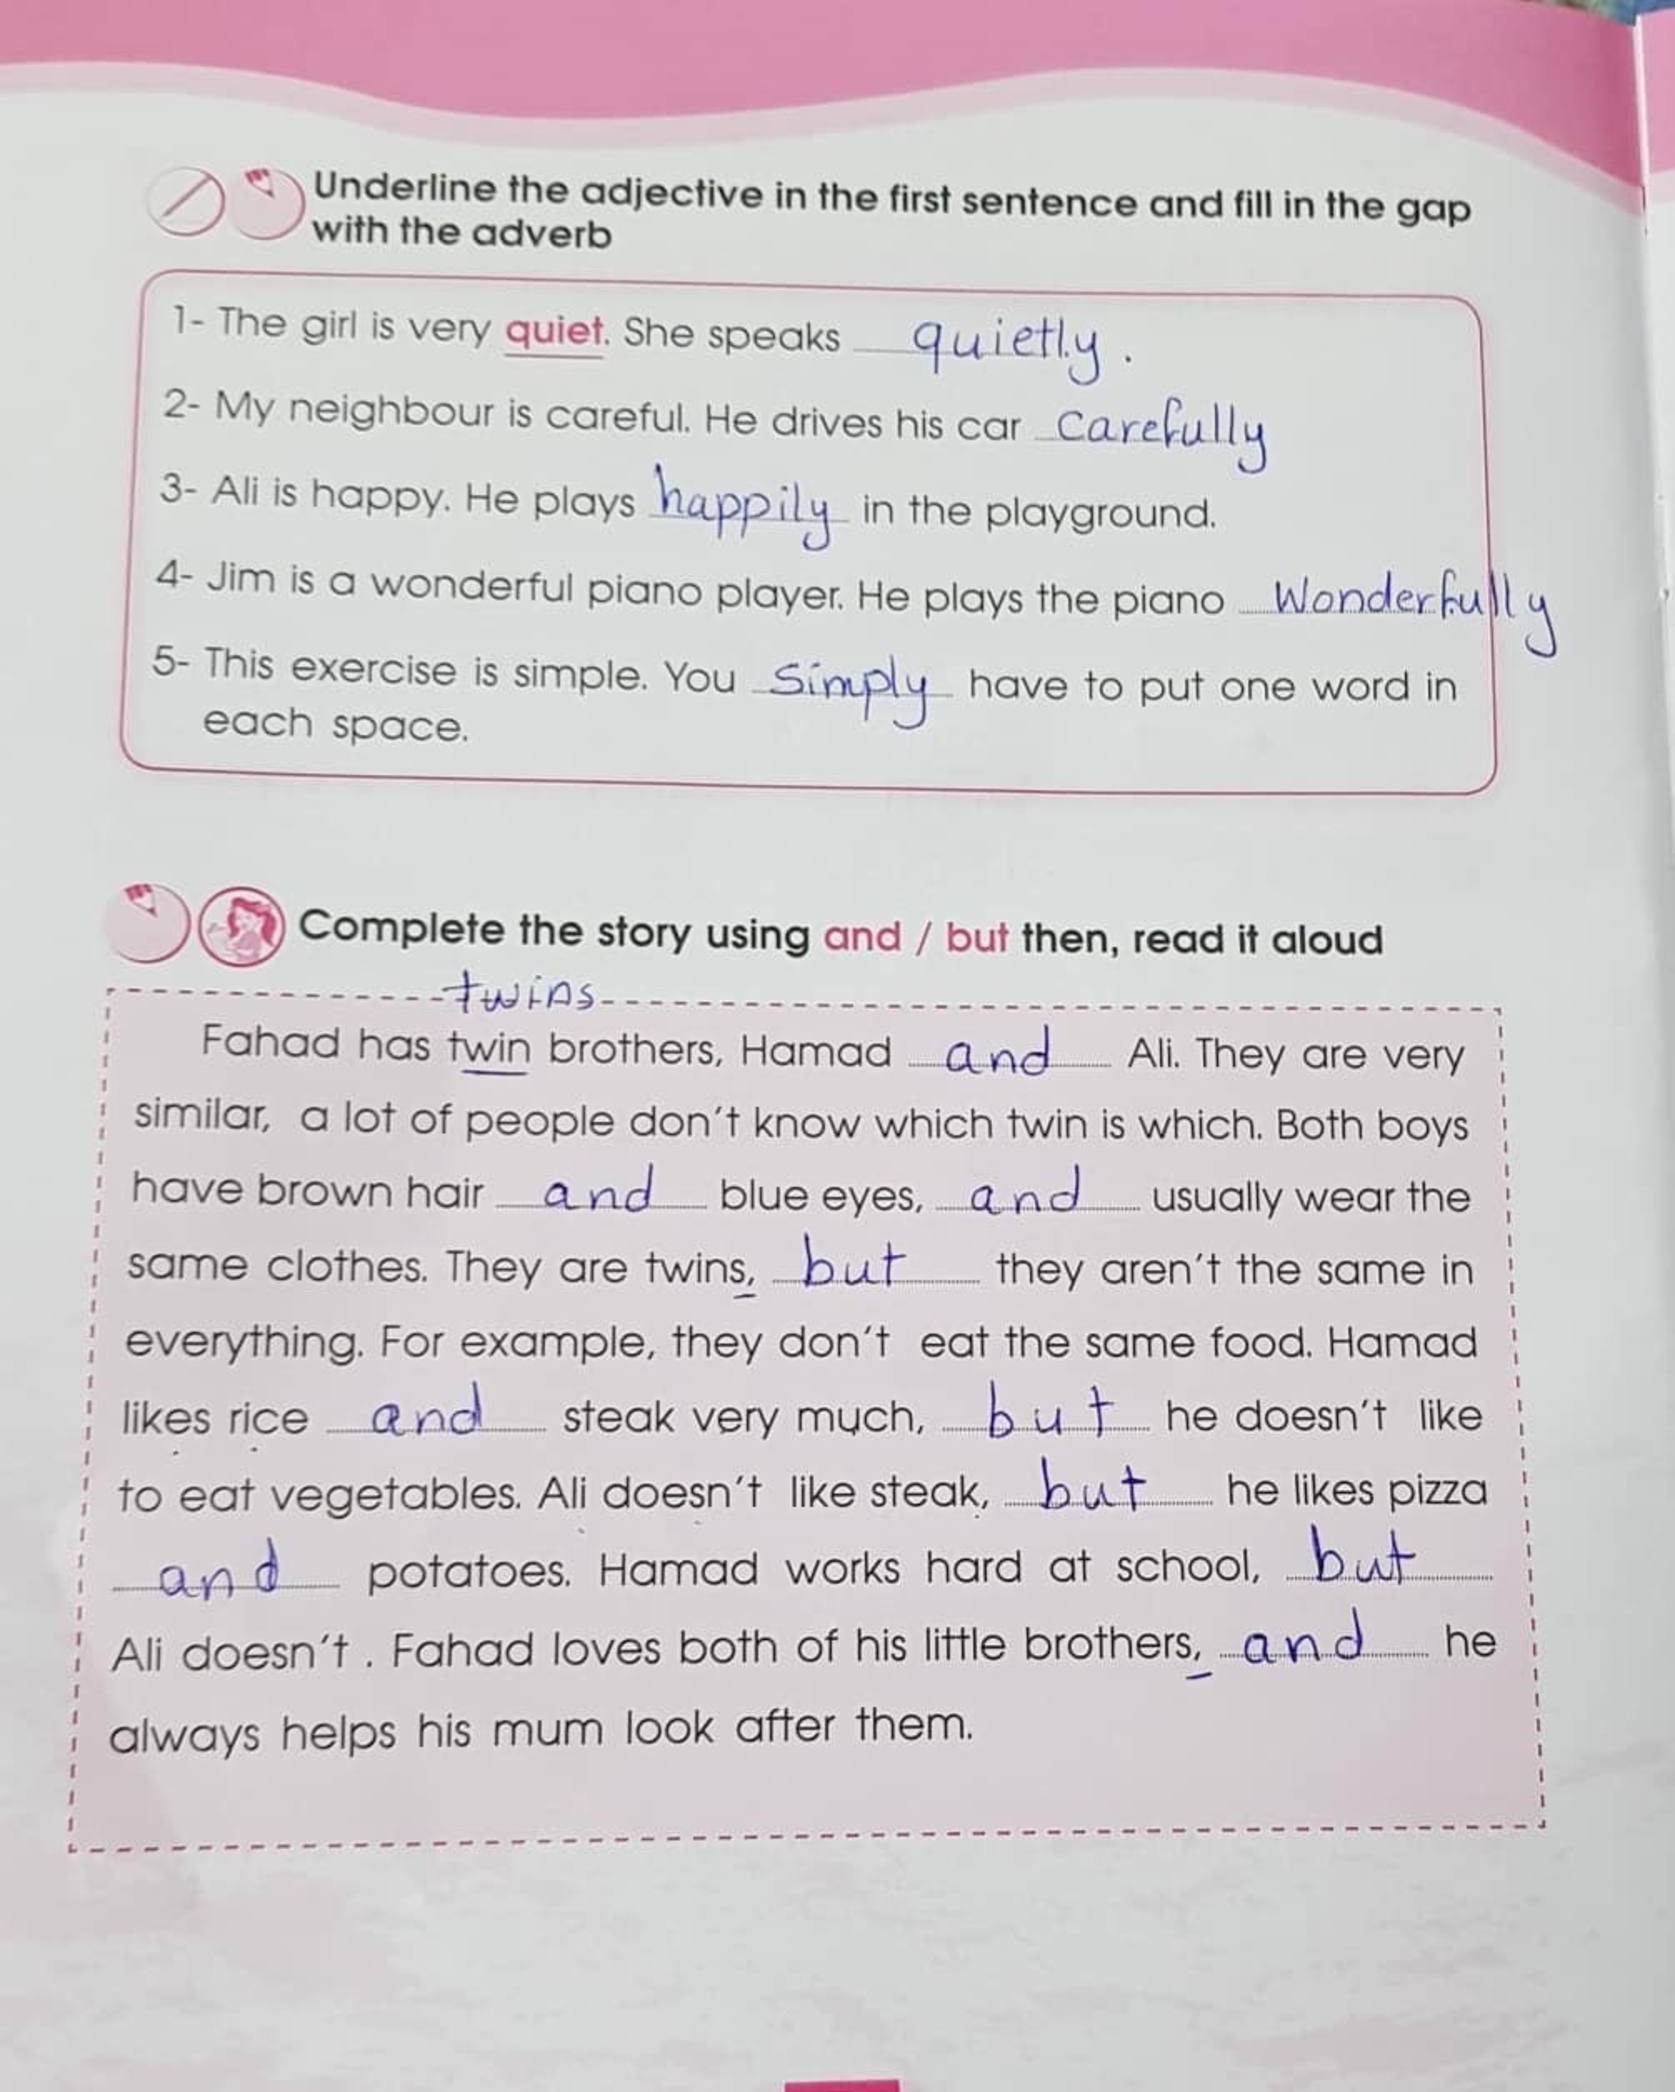 Underline the adjective in the first sentence and fill in the gap
with the adverb
1- The girl is very quiet. She speaks quietly.
2- My neighbour is careful. He drives his car carefully
3- Ali is happy. He plays happily in the playground.
4- Jim is a wonderful piano player. He plays the piano Wonderfully
5- This exercise is simple. You Simply have to put one word in
each space.
Complete the story using and / but then, read it aloud
twins
Fahad has twin brothers, Hamad and Ali. They are very
similar, a lot of people don't know which twin is which. Both boys
have brown hair and blue eyes, and usually wear the
same clothes. They are twins, but they aren't the same in
everything. For example, they don't eat the same food. Hamad
likes rice and steak very much, but he doesn't like
to eat vegetables. Ali doesn't like steak, but he likes pizza
and potatoes. Hamad works hard at school, but
Ali doesn't . Fahad loves both of his little brothers, and he
always helps his mum look after them.